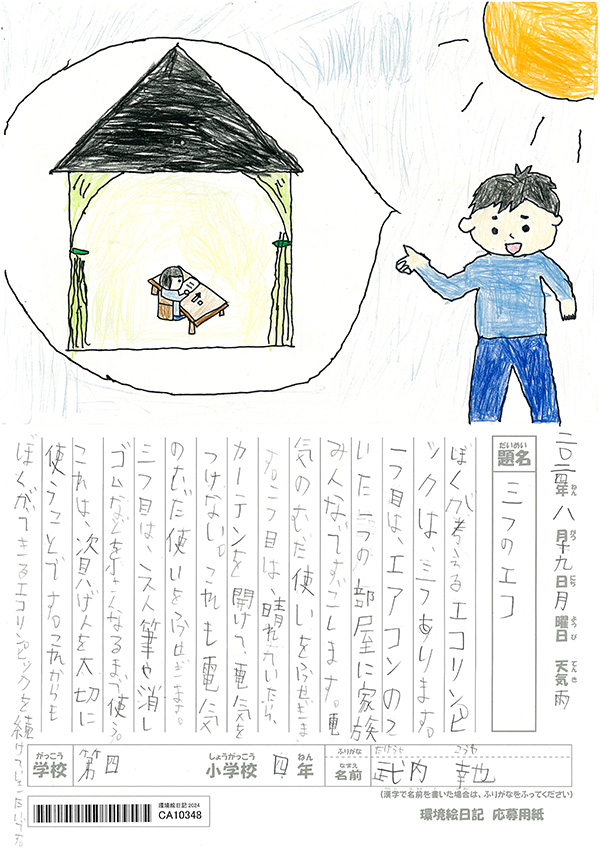 二〇二四年 八月十九日 月曜日 天気 雨
ねん がつ にち ようび てんき
だいめい
題名 三つのエコ
ぼくが考えるエコリンピ
ックは、三つあります。
一つ目は、エアコンのつ
いた一つの部屋に家族
みんなですごします。電
気のむだ使いをふせぎま
す。二つ目は、晴れていたら、
カーテンを開けて、電気を
つけない。これも電気
のむだ使いをふせぎます。
三つ目は、えん筆や消し
ゴムなどを小さくなるまで使う。
これは、資げんを大切に
使うことです。これからも
ぼくができるエコリンピックを続けていきたいです。
がっこう しょうがっこう ねん ふりがな
学校 第四 小学校 四年
なまえ
名前 武内 幸也
(漢字で名前を書いた場合は、ふりがなをふってください)
環境絵日記 2024
CA10348
環境絵日記 応募用紙